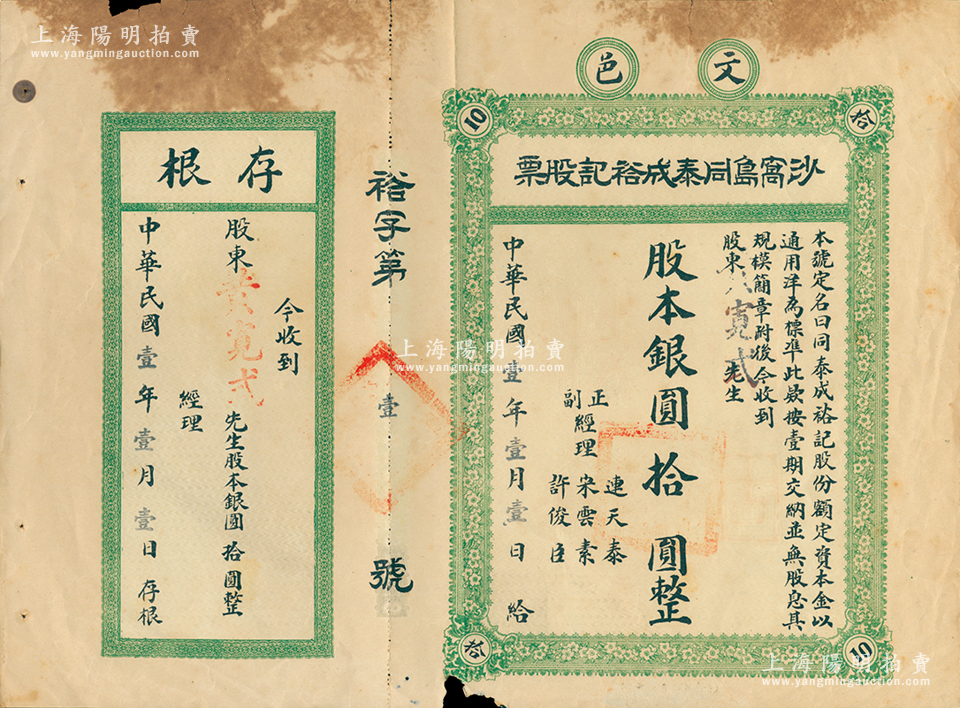 上海陽明拍賣
www.yangmingauction.com
文邑
沙窩島同泰成裕記股票
10
拾
本號定名曰同泰成裕記股份額定資本金以
通用洋為標準此款按壹期交納並無股息其
規模簡章附後今收到
股東 寬弍先生
股本銀圓拾圓整
正
副
經理
連天泰
宋雲素
許俊臣
中華民國壹年壹月壹日給
拾
10
裕字第壹號
存根
今收到
股東黄寬弍先生股本銀圓拾圓整
經理
中華民國壹年壹月壹日存根
上海陽明拍賣
www.yangmingauction.com
上海陽明拍賣
www.yangmingauction.com